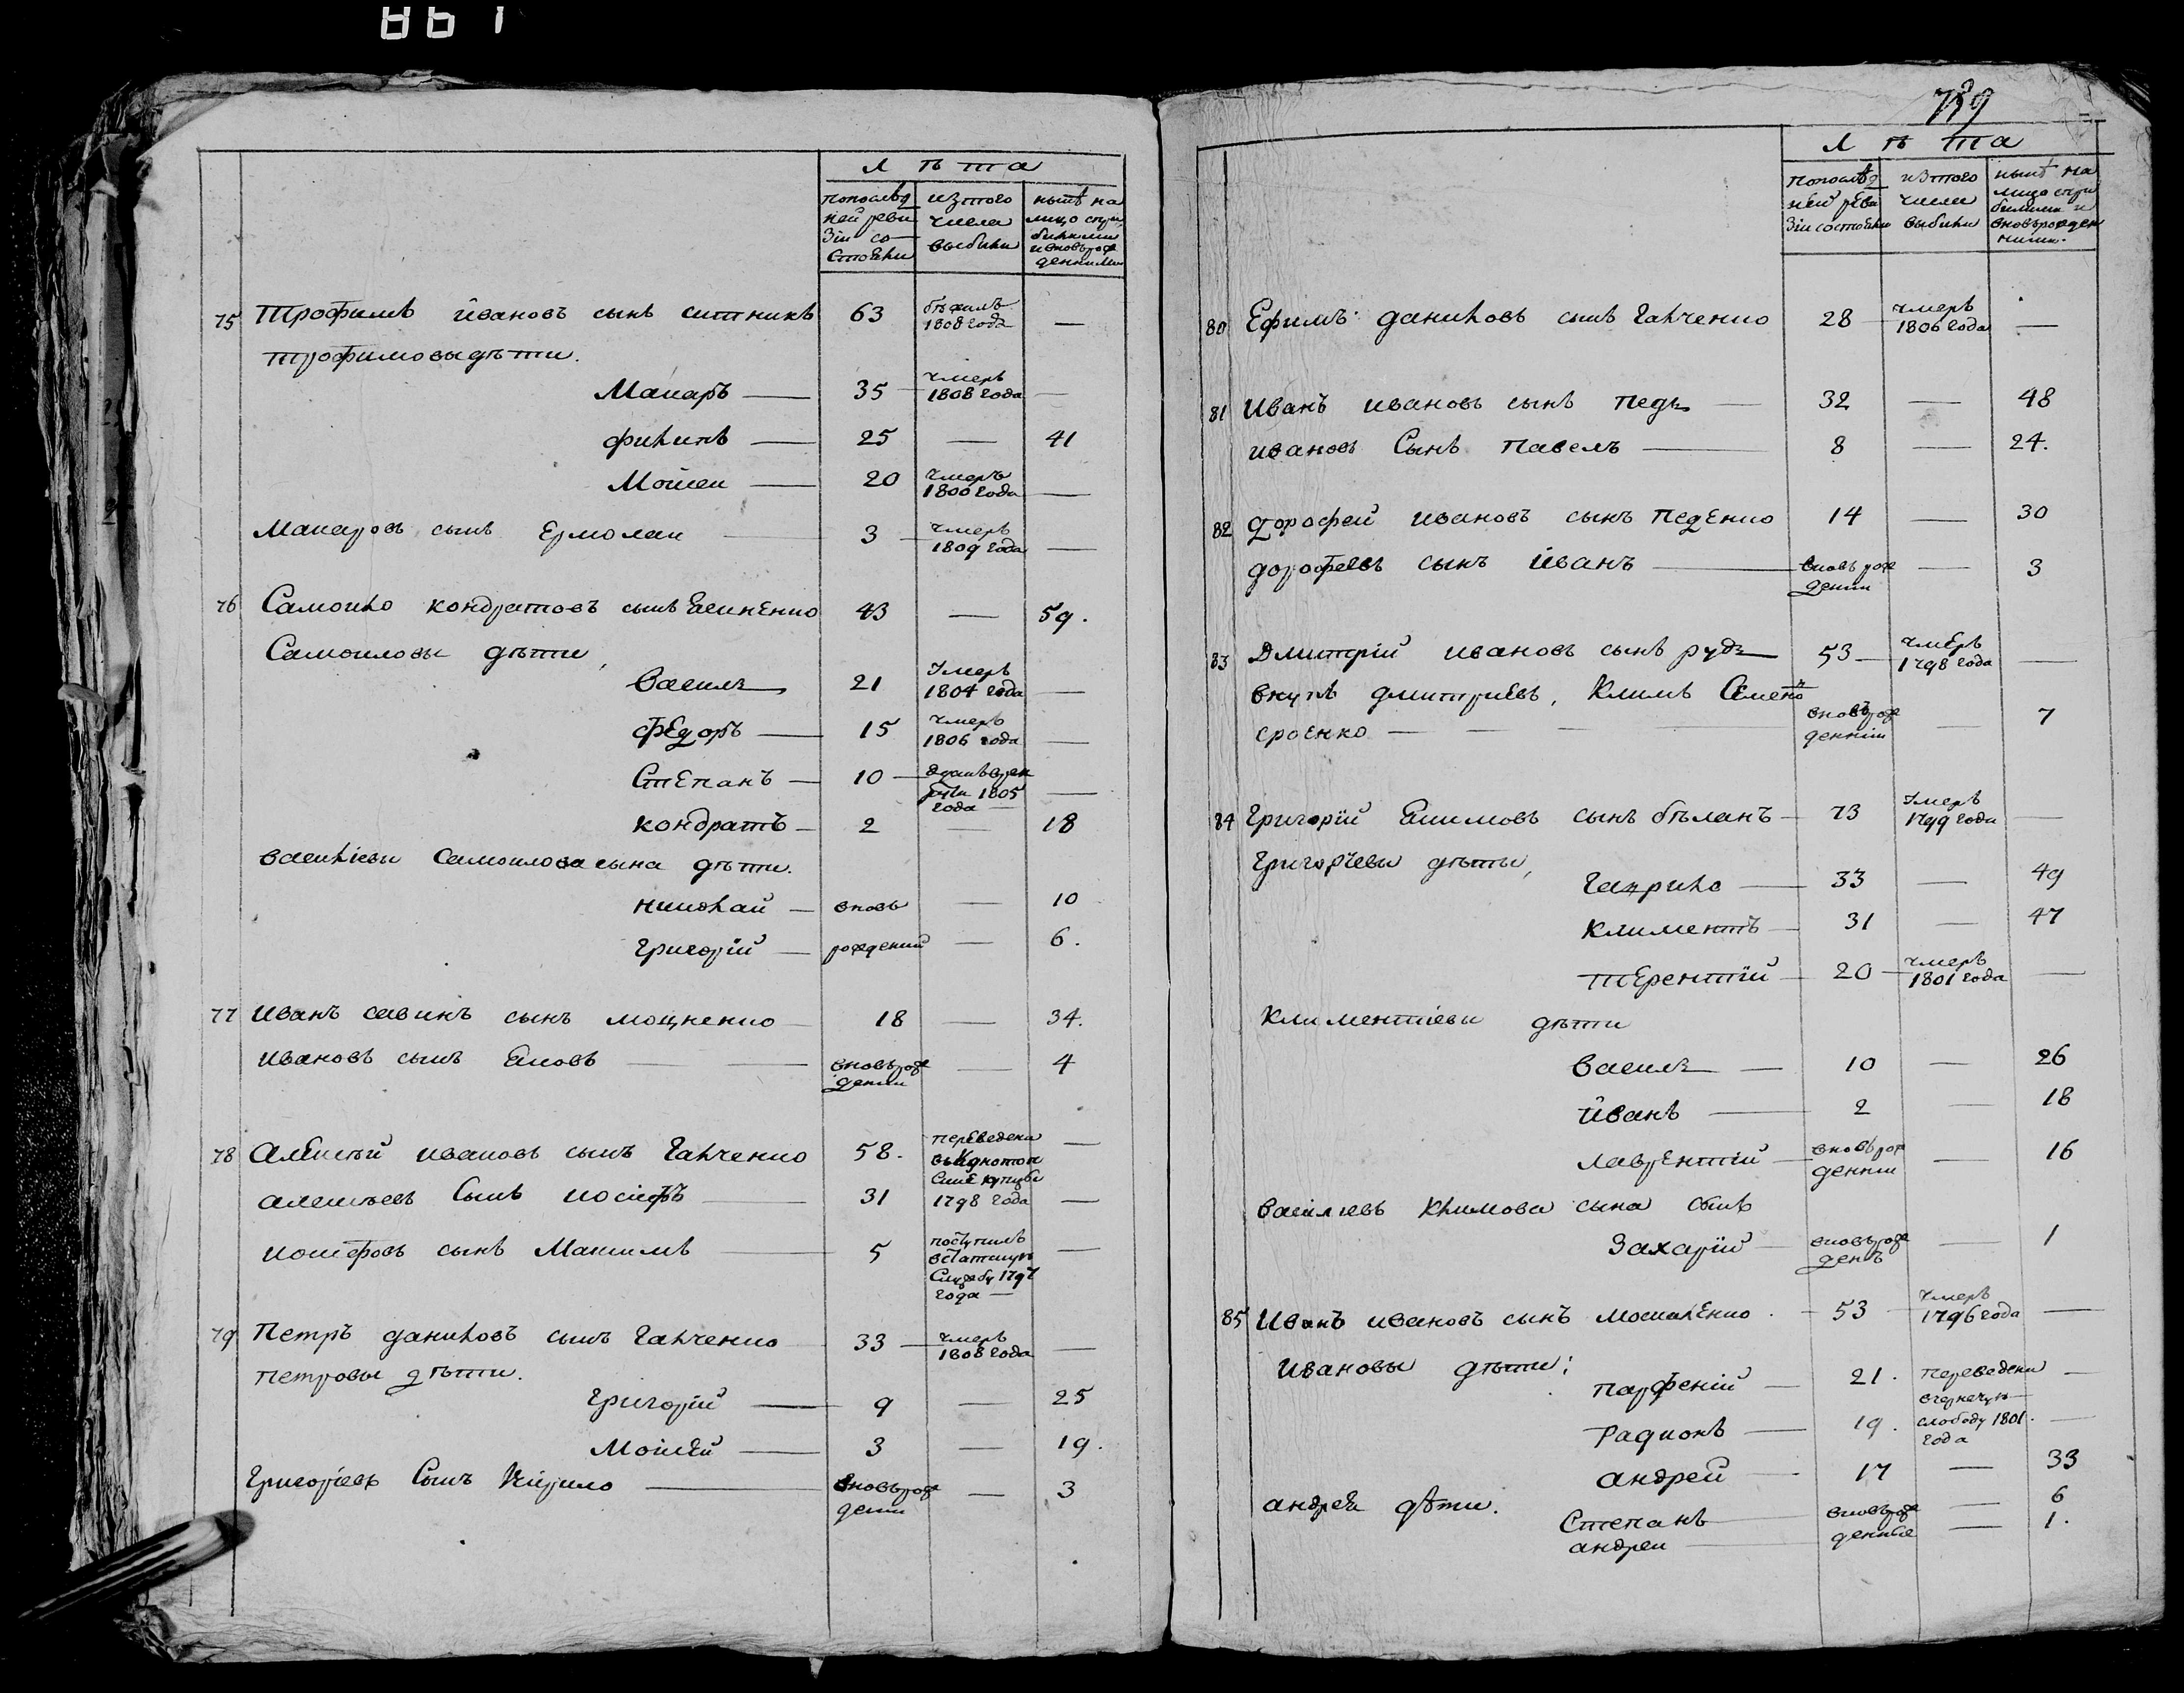 867
лѣта
по послѣд
ней реви
зіи со
стояли
из того
числа
выбыли
нынѣ на
лицо с при
былыми
и вновь рож
денными
75 Трофимъ ивановъ сынъ ситникъ 63 бѣжалъ 1808 года —
трофимовы дѣти.
Макаръ — 35 умеръ 1808 года —
филипъ — 25 — 41
Мойсеи — 20 умеръ 1800 года —
Макаровъ сынъ Ермолаи 3 умеръ 1809 года —
76 Самоило кондратовъ сынъ 43 — 59.
Самоиловы дѣти,
василь 21 умеръ 1804 года —
Федоръ — 15 умеръ 1806 года —
Степанъ — 10 1805 года —
кондратъ — 2 — 18
василіевы самоилова сына дѣти.
николай — вновь — 10
григорій — рождений — 6.
77 иванъ савинъ сынъ моцненко 18 — 34.
ивановъ сынъ яковъ — вновь рож дении — 4
78 алексѣй ивановъ сынъ галченко 58. переведени —
алексѣевъ сынъ иосифъ — 31 1798 года —
иосифовъ сынъ Максимъ 5 поступилъ в статскую службу 1797 года —
79 Петръ даниловъ сынъ галченко 33 умеръ 1808 года —
петровы дѣти.
григорій — 9 — 25
Моисей — 3 — 19.
григоріевъ сынъ кирило — вновь рож дении — 3
759
лѣта
по послѣд
ней реви
зіи состояли
из того
числа
выбыли
нынѣ на
лицо с при
былыми и
вновь рожден
ными.
80 Ефимъ даниловъ сынъ галченко 28 умеръ 1806 года —
81 иванъ ивановъ сынъ педь — 32 — 48
ивановъ сынъ павелъ — 8 — 24.
82 дорофей ивановъ сынъ педенко 14 — 30
дорофѣевъ сынъ иванъ — вновь рож дении — 3
83 Дмитрій ивановъ сынъ рудь — 53 умеръ 1798 года —
внукъ дмитріевъ, климъ семено
вновь рож денніи — 7
84 григорій якимовъ сынъ бѣланъ — 73 умеръ 1799 года —
григорьевы дѣти,
гаврило — 33 — 49
климентъ — 31 — 47
терентій — 20 умеръ 1801 года —
климентіевы дѣти
василь — 10 — 26
иванъ — 2 — 18
лаврентій — вновь рож денніи — 16
василіевъ климова сына сынъ
Захарій — вновь рож денъ — 1
85 иванъ ивановъ сынъ москаленко 53 умеръ 1796 года —
ивановы дѣти:
парфеній — 21. переведени —
радионъ — 19. слободу 1801. года —
андрей — 17 — 33
андрея дѣти.
степанъ вновь рож — 6
андреи денные — 1.